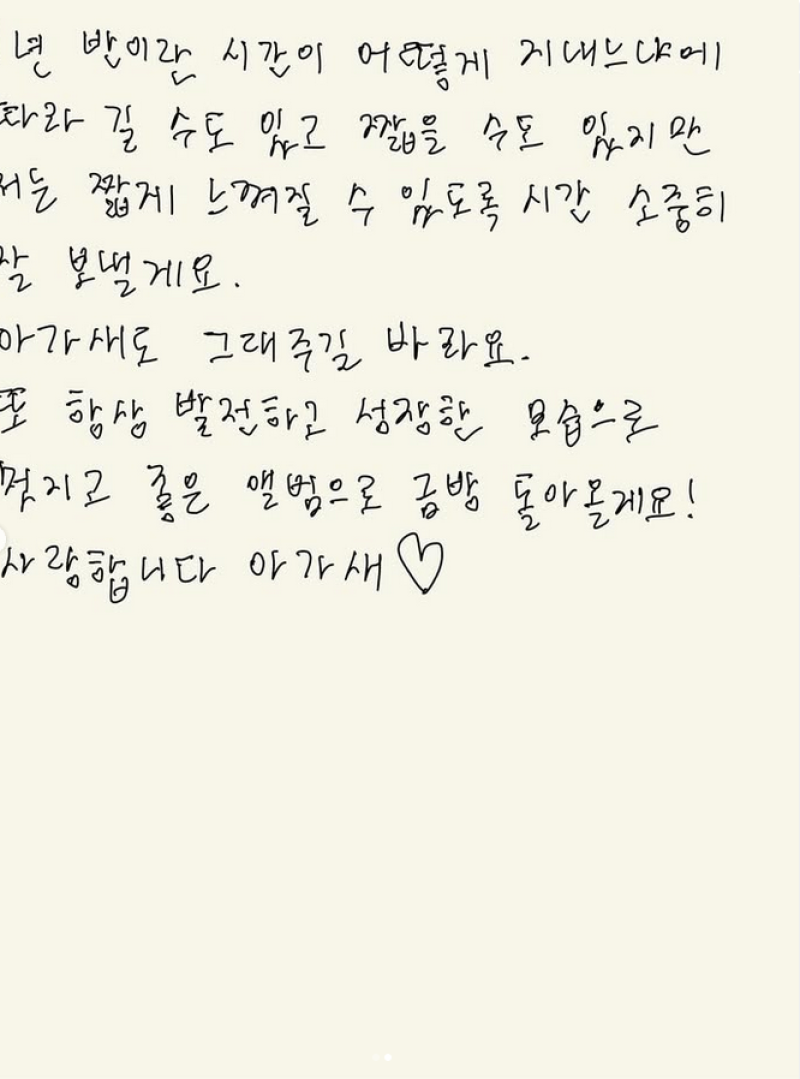 년 반이란 시간이 어떻게 지내느냐에
따라 길 수도 있고 짧을 수도 있지만
저는 짧게 느껴질 수 있도록 시간 소중히
잘 보낼게요.
아가새도 그래주길 바라요.
또 항상 발전하고 성장한 모습으로
멋지고 좋은 앨범으로 금방 돌아올게요!
사랑합니다 아가새♡